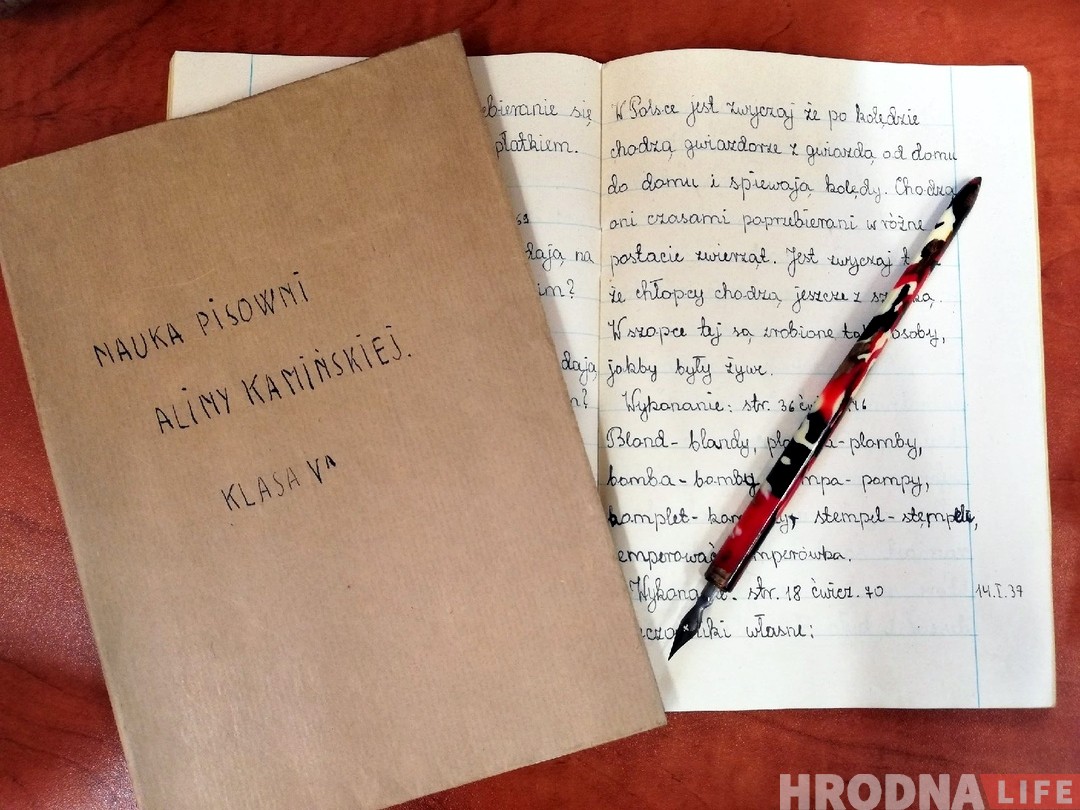 NAUKA PISOWNI
ALINY KAMIŃSKIEJ.
KLASA VA
ebieranie się
płatkiem.
ają na
im?
dają
n?
W Polsce jest zwyczaj że po kolędzie
chodzą gwiazdorze z gwiazdą od domu
do domu i śpiewają kolędy. Chodzą
oni czasami poprzebierani w różne
postacie zwierząt. Jest zwyczaj
że chłopcy chodzą jeszcze z
W szopce tej są zrobione osoby,
jakby były żywe.
Wykonanie: str. 36
Blond - blondy, - plomby,
bomba - bomby, - pompy,
komplet - stempel - stemple,
temperować temperówka.
Wykonanie. str. 18 ćwicz. 70
14.I.37
własne:
HRODNA LIFE